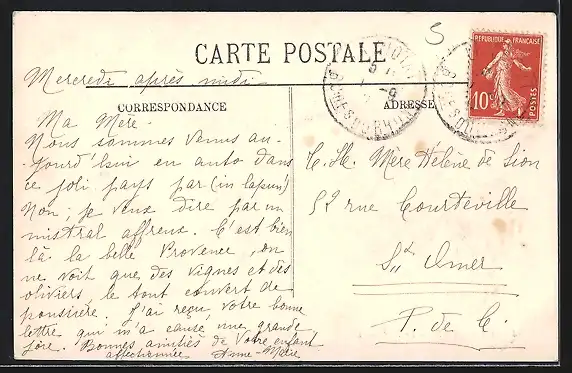 5
CARTE POSTALE
REPUBLIQUE FRANÇAISE
10c
POSTES
BOUCHES DU RHONE
Mercredi après midi
CORRESPONDANCE
ADRESSE
Ma Mère.
Nous sommes venus au-
jourd'hui en auto dans
ce joli pays par (un lapsus)
Non, je veux dire par un
mistral affreux. C'est bien
là la belle Provence, on
ne voit que des vignes et des
oliviers, le tout couvert de
poussière. J'ai reçu votre bonne
lettre qui m'a causé une grande
joie. Bonnes amitiés de Votre enfant
affectionnée Anne-Marie
T. Ch. Mère Hélène de Sion
52 rue Courteville
St Omer
P. de C.